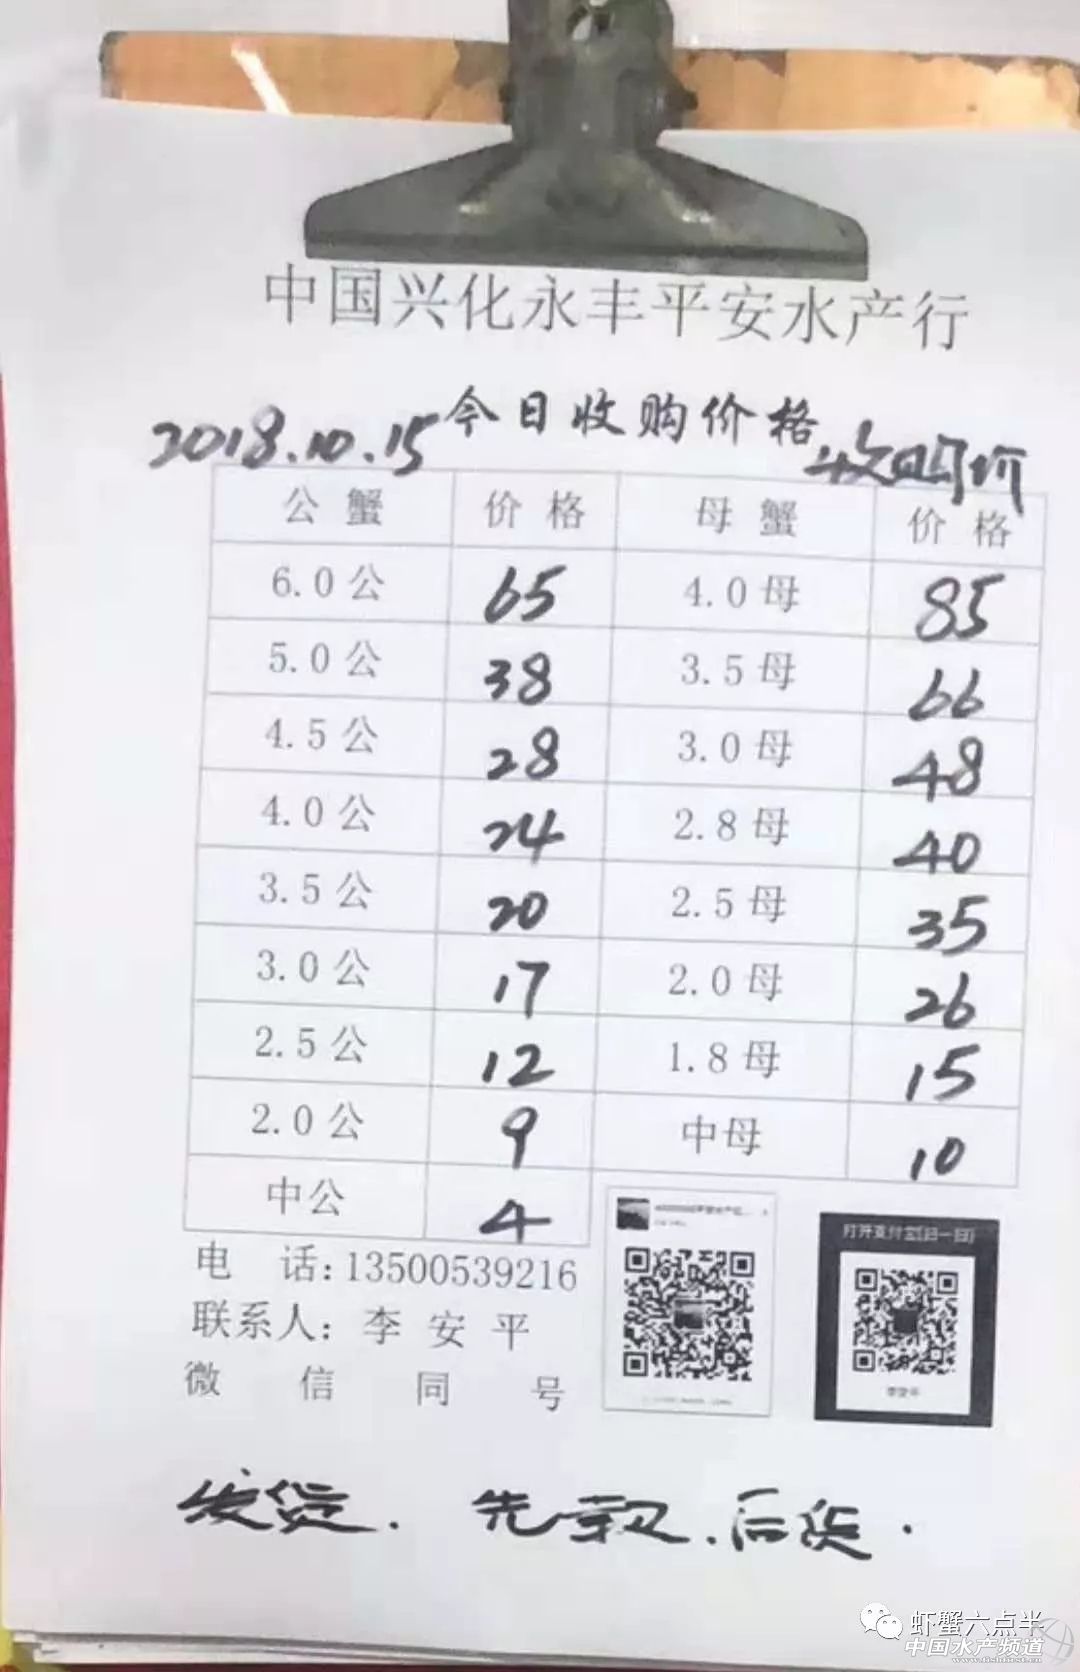 中国兴化永丰平安水产行
今日收购价格
2018.10.15 收购价
公蟹 价格 母蟹 价格
6.0公 65 4.0母 85
5.0公 38 3.5母 66
4.5公 28 3.0母 48
4.0公 24 2.8母 40
3.5公 20 2.5母 35
3.0公 17 2.0母 26
2.5公 12 1.8母 15
2.0公 9 中母 10
中公 4
电 话：13500539216
联系人：李安平
微信同号
打开支付宝[扫一扫]
李安平
发货．先款．后货．
虾蟹六点半
中国水产频道
www.fishfirst.cn